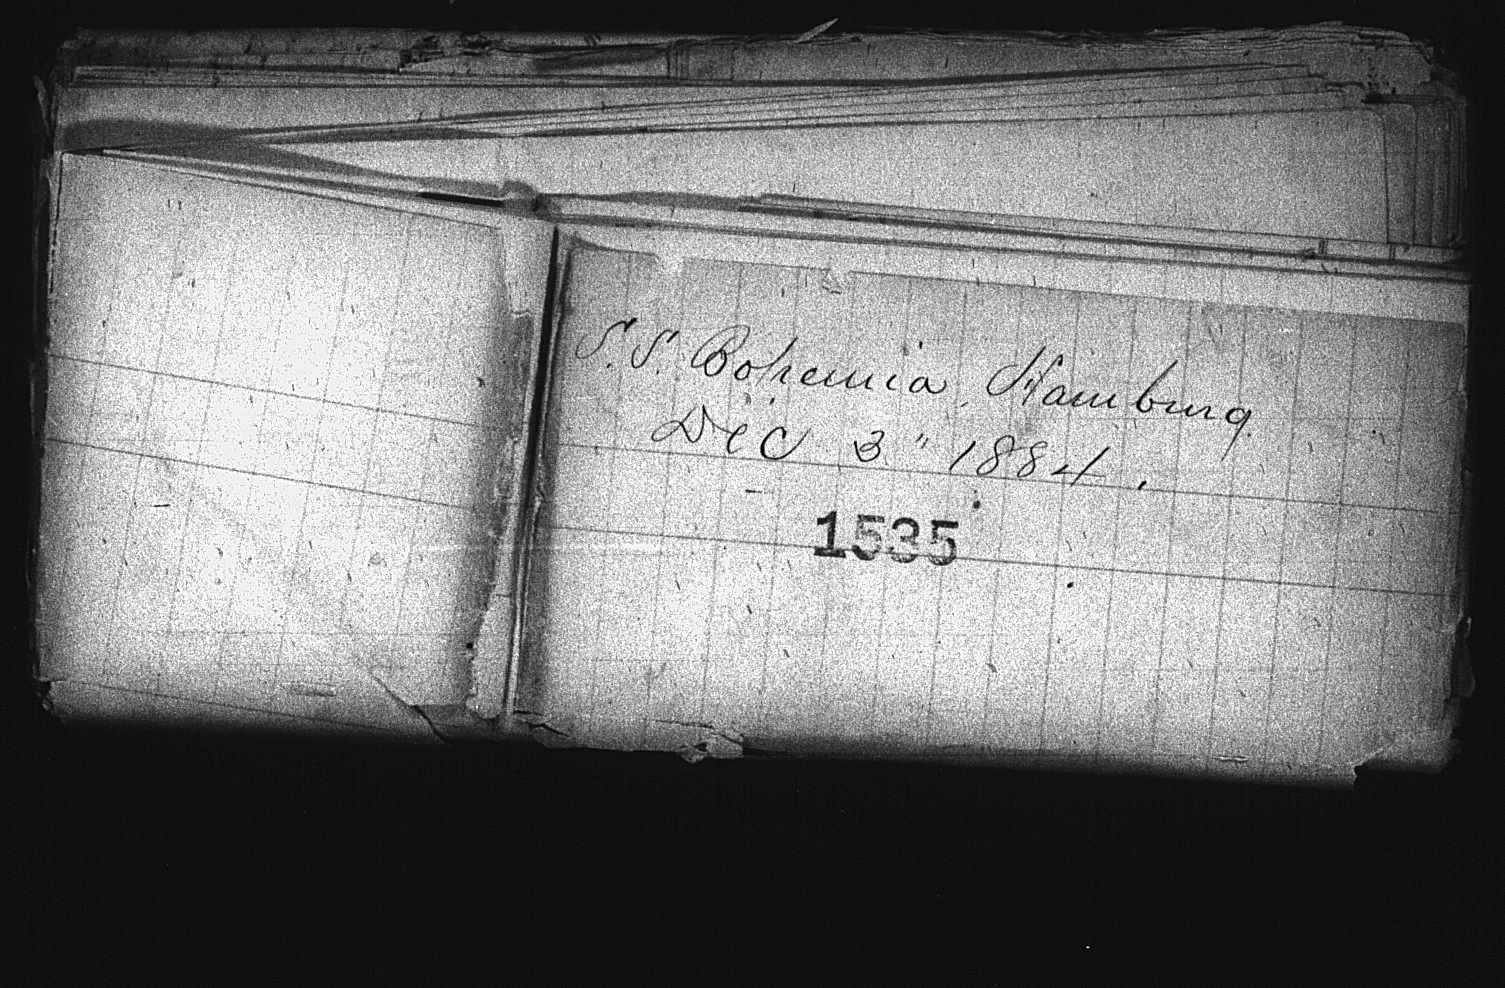 S.S. Bohemia, Hamburg
Dec 3" 1884.
1535